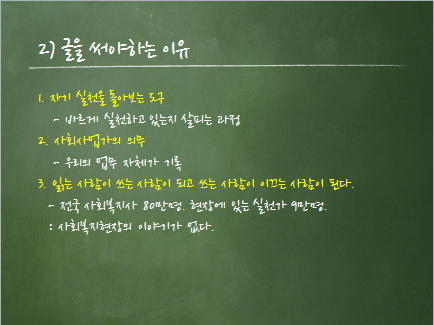 2) 글을 써야하는 이유
1. 자기 실천을 돌아보는 도구
- 바르게 실천하고 있는지 살피는 과정
2. 사회사업가의 의무
- 우리의 업무 자체가 기록
3. 읽는 사람이 쓰는 사람이 되고 쓰는 사람이 이끄는 사람이 된다.
- 전국 사회복지사 80만명. 현장에 있는 실천가 9만명.
: 사회복지현장의 이야기가 없다.